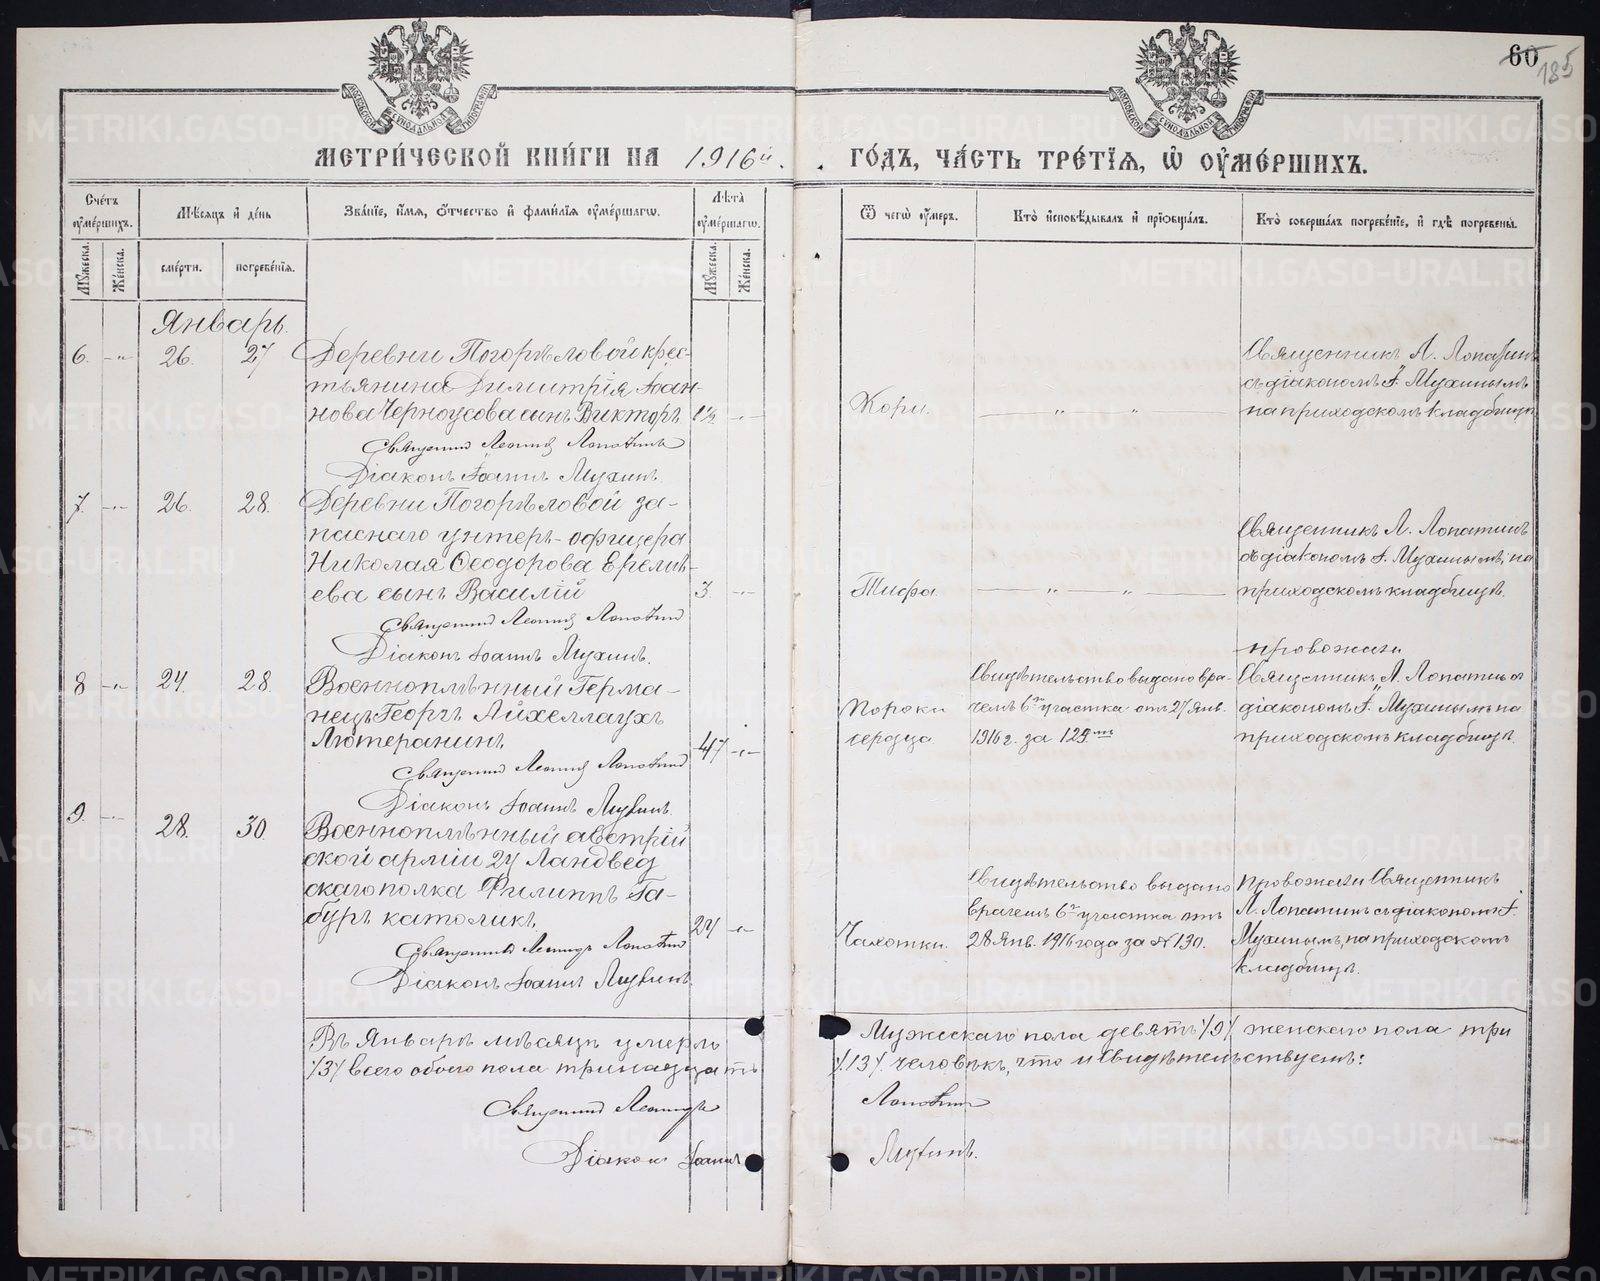 60
185
МЕТРИ́ЧЕСКОЙ КНИ́ГИ НА 1916й. ГО́ДЪ, ЧА́СТЬ ТРЕ́ТЇѦ, Ѡ҆ ОУ҆МЕ́РШИХЪ.
Сче́тъ оу҆ме́ршихъ.
Мѣ́сѧцъ и҆ де́нь
Зва́нїе, и҆́мѧ, ѻ҆́тчество и҆ фамі́лїѧ оу҆ме́ршагѡ.
Лѣ́та оу҆ме́ршагѡ.
Ѿ чегѡ̀ оу҆́меръ.
Кто̀ и҆сповѣ́дывалъ и҆ прїѡбща́лъ.
Кто̀ соверша́лъ погребе́нїе, и҆ гдѣ̀ погребены̀.
Мꙋ́жеска.
Же́нска.
сме́рти.
погребе́нїѧ.
Мꙋ́жеска.
Же́нска.
Январь.
6. -"- 26. 27
Деревни Погорѣловой крес-
тьянина Димитрія Іоан-
нова Черноусова сынъ Викторъ 1½ -"-
Священник Леонид Лопатинъ
Діаконъ Іоаннъ Мухинъ.
Кори.
— " — " —
Священникъ Л. Лопатинъ
съ діакономъ І. Мухинымъ
на приходскомъ кладбищѣ
7. -"- 26. 28.
Деревни Погорѣловой за-
паснаго унтеръ-офицера
Николая Ѳеодорова Еремѣ-
ева сынъ Василій 3. -"-
Священник Леонид Лопатин
Діаконъ Іоаннъ Мухинъ.
Тифа.
— " — " —
Священникъ Л. Лопатинъ
съ діакономъ І. Мухинымъ, на
приходскомъ кладбищѣ.
8 -"- 24. 28.
Военноплѣнный Герма-
нецъ Георгъ Айхеллаухъ
Лютеранинъ. 47 -"-
Священник Леонид Лопатин
Діаконъ Іоаннъ Мухинъ.
Порока
сердца.
Свидѣтельство выдано вра-
чемъ 6го участка отъ 27 Янв.
1916 г. за 129.
провожали
Священникъ Л. Лопатинъ съ
діакономъ І. Мухинымъ на
приходскомъ кладбищѣ.
9. -"- 28. 30.
Военноплѣнный австрій
ской арміи 24 Ландвер
скаго полка Филиппъ Га-
буръ католикъ. 24 -"-
Священникъ Леонидъ Лопатин
Діаконъ Іоаннъ Мухинъ.
Чахотки.
Свидѣтельство выдано
врачемъ 6го участка отъ
28 Янв. 1916 года за № 130.
Провожали Священникъ
Л. Лопатинъ съ діакономъ І.
Мухинымъ, на приходскомъ
кладбищѣ.
Въ Январѣ мѣсяцѣ умерло Мужескаго пола девять /9/ женскаго пола три
/3/ всего обоего пола тринадцать /13/. человѣкъ, что и Свидѣтельствуемъ:
Священник Леонидъ Лопатин
Діаконъ Іоаннъ Мухинъ.